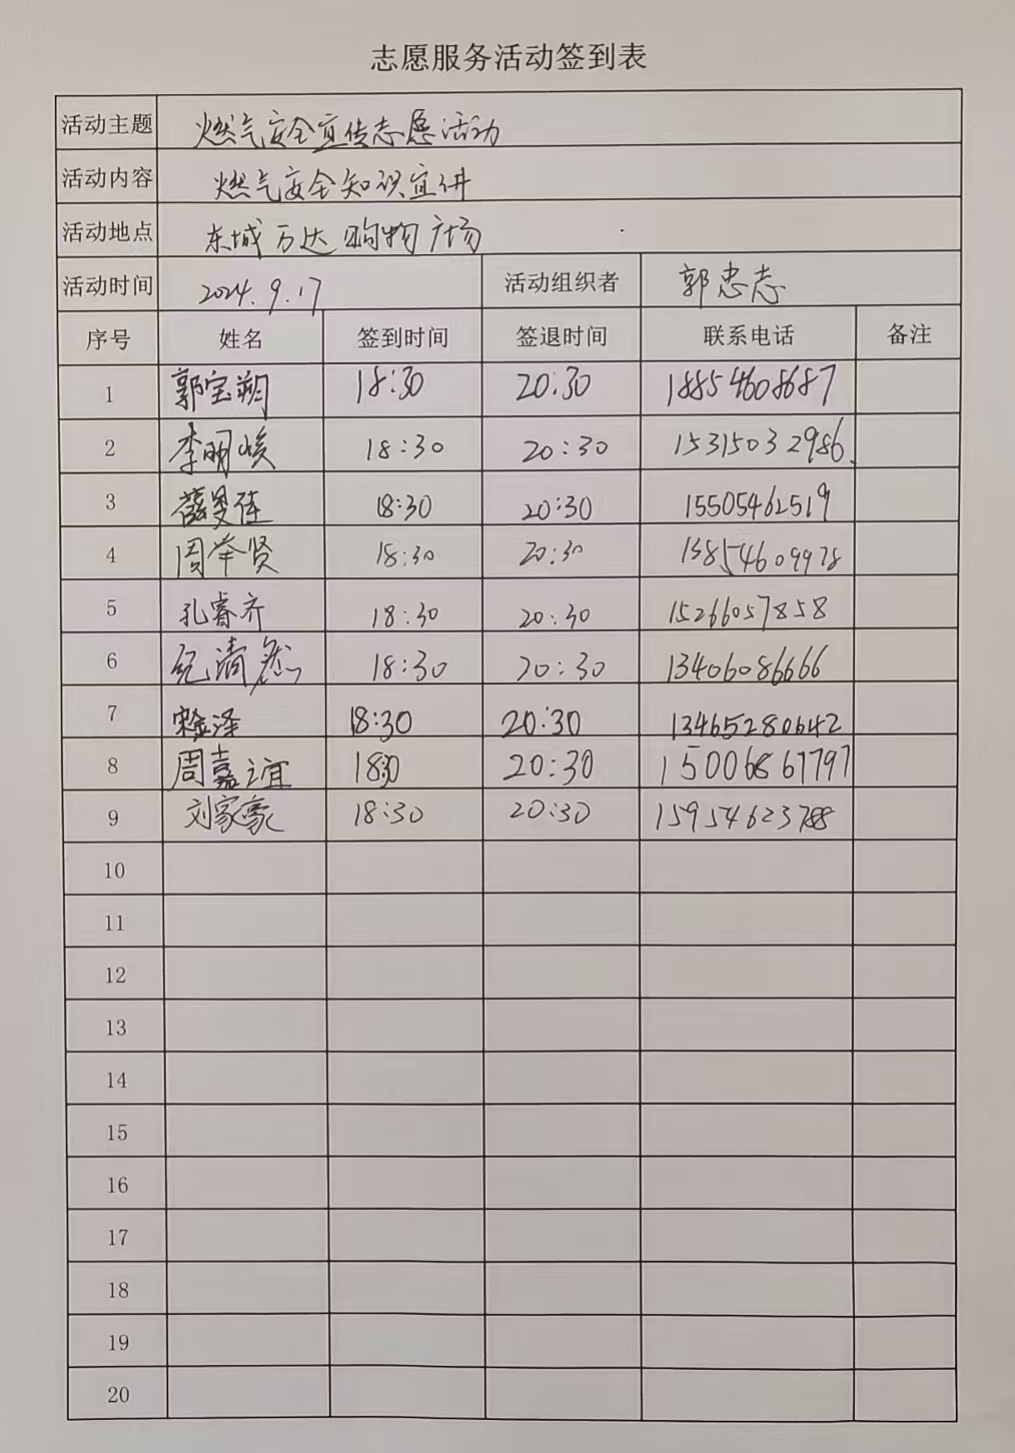 志愿服务活动签到表
活动主题 燃气安全宣传志愿活动
活动内容 燃气安全知识宣讲
活动地点 东城万达购物广场
活动时间 2024.9.17 活动组织者 郭忠志
序号 姓名 签到时间 签退时间 联系电话 备注
1 郭宝朔 18:30 20:30 18854608687
2 李明峻 18:30 20:30 15315032986
3 薛旻佳 18:30 20:30 15505462519
4 周举贤 18:30 20:30 13854609978
5 孔睿齐 18:30 20:30 15266057858
6 纪清然 18:30 20:30 13406086666
7 18:30 20:30 13465280642
8 周嘉谊 18:30 20:30 15006867797
9 刘家豪 18:30 20:30 15954623788
10
11
12
13
14
15
16
17
18
19
20